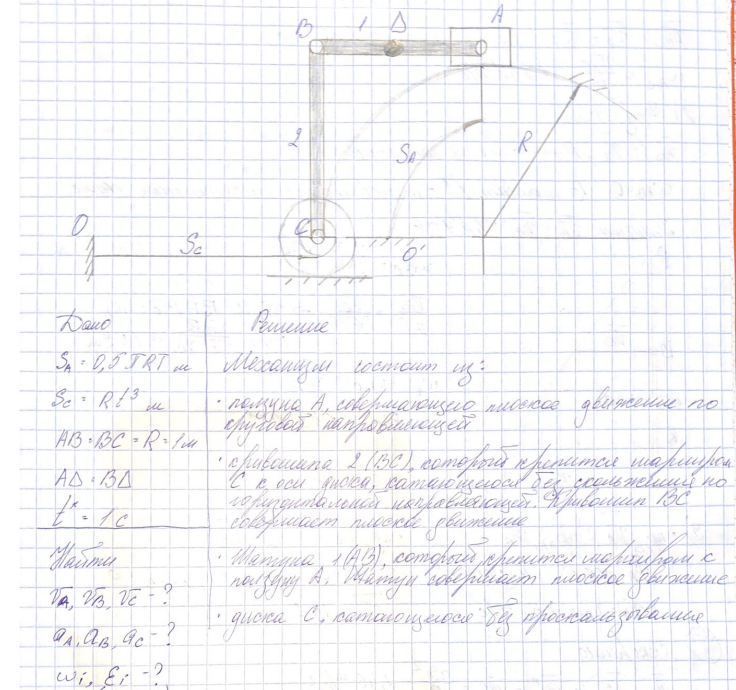 B 1 Δ A
2
S_A
R
O
C
S_C
O'
Дано
S_A = 0,5πRT м
S_C = Rt³ м
AB = BC = R = 1 м
AΔ = BΔ
t* = 1 с
Найти
v̄_A, v̄_B, v̄_C - ?
a_A, a_B, a_C - ?
ω_i, ε_i - ?
Решение
Механизм состоит из:
· ползуна A, совершающего плоское движение по
круговой направляющей
· кривошипа 2 (BC), который крепится шарниром
C к оси диска, катающегося без скольжения по
горизонтальной направляющей. Кривошип BC
совершает плоское движение
· Шатуна 1 (AB), который крепится шарниром к
ползуну A. Шатун совершает плоское движение
· диска C, катающегося без проскальзывания